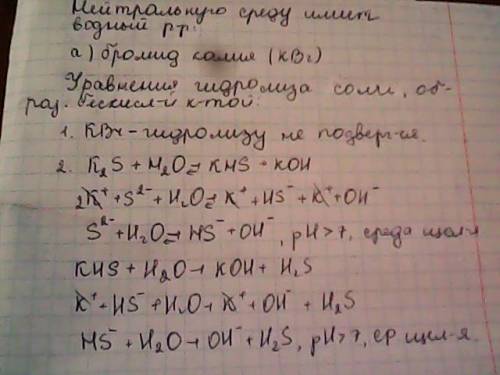 Нейтральную среду имеет
водный р-р:
а) бромид калия (KBr)
Уравнения гидролиза соли, об-
раз. бескисл-й к-той:
1. KBr - гидролизу не подверг-ся.
2. K₂S + H₂O ⇄ KHS + KOH
2K⁺ + S²⁻ + H₂O ⇄ K⁺ + HS⁻ + K⁺ + OH⁻
S²⁻ + H₂O ⇄ HS⁻ + OH⁻, pH>7, среда щел-я
KHS + H₂O → KOH + H₂S
K⁺ + HS⁻ + H₂O → K⁺ + OH⁻ + H₂S
HS⁻ + H₂O → OH⁻ + H₂S, pH>7, ср щел-я.